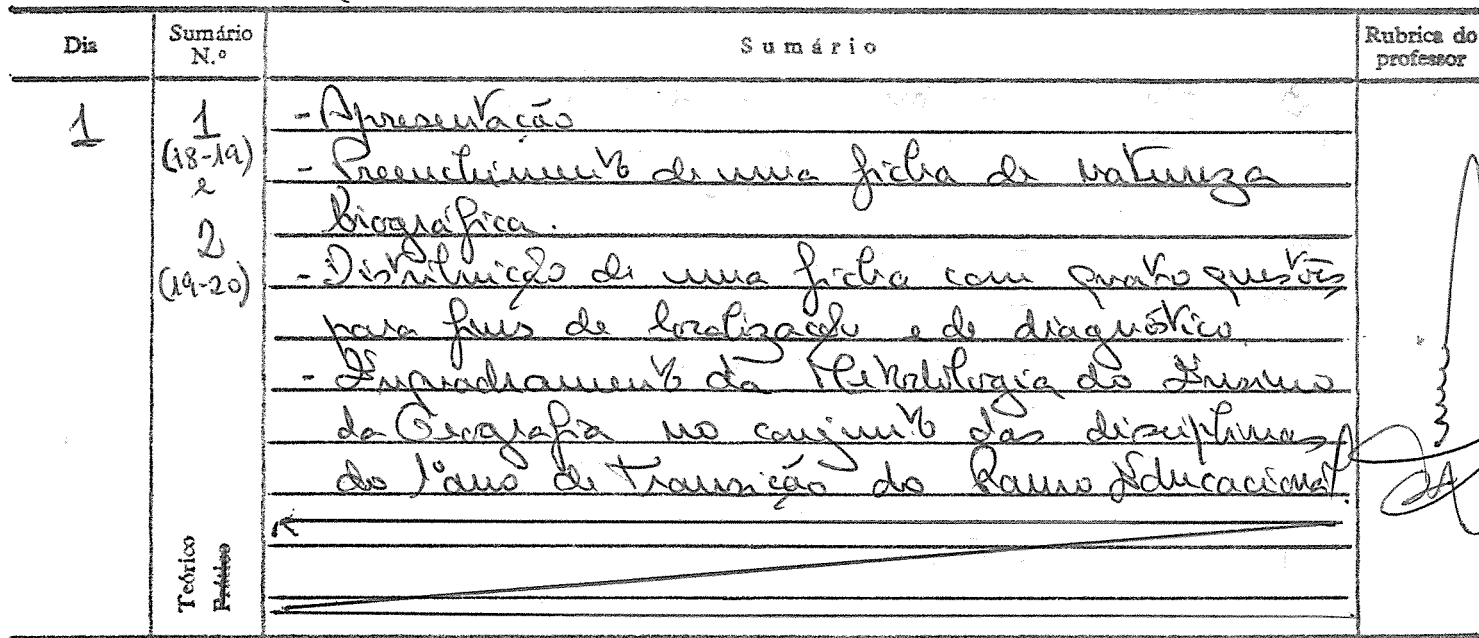 Dia
Sumário N.º
Sumário
Rubrica do professor
1
1
(18-19)
e
2
(19-20)
- Apresentação
- Preenchimento de uma ficha de natureza
biográfica.
- Distribuição de uma ficha com quatro questões
para fins de localização e de diagnóstico
- Enquadramento da Metodologia do Ensino
da Geografia no conjunto das disciplinas
do 1º ano de transição do Ramo Educacional.
Teórico
Prático